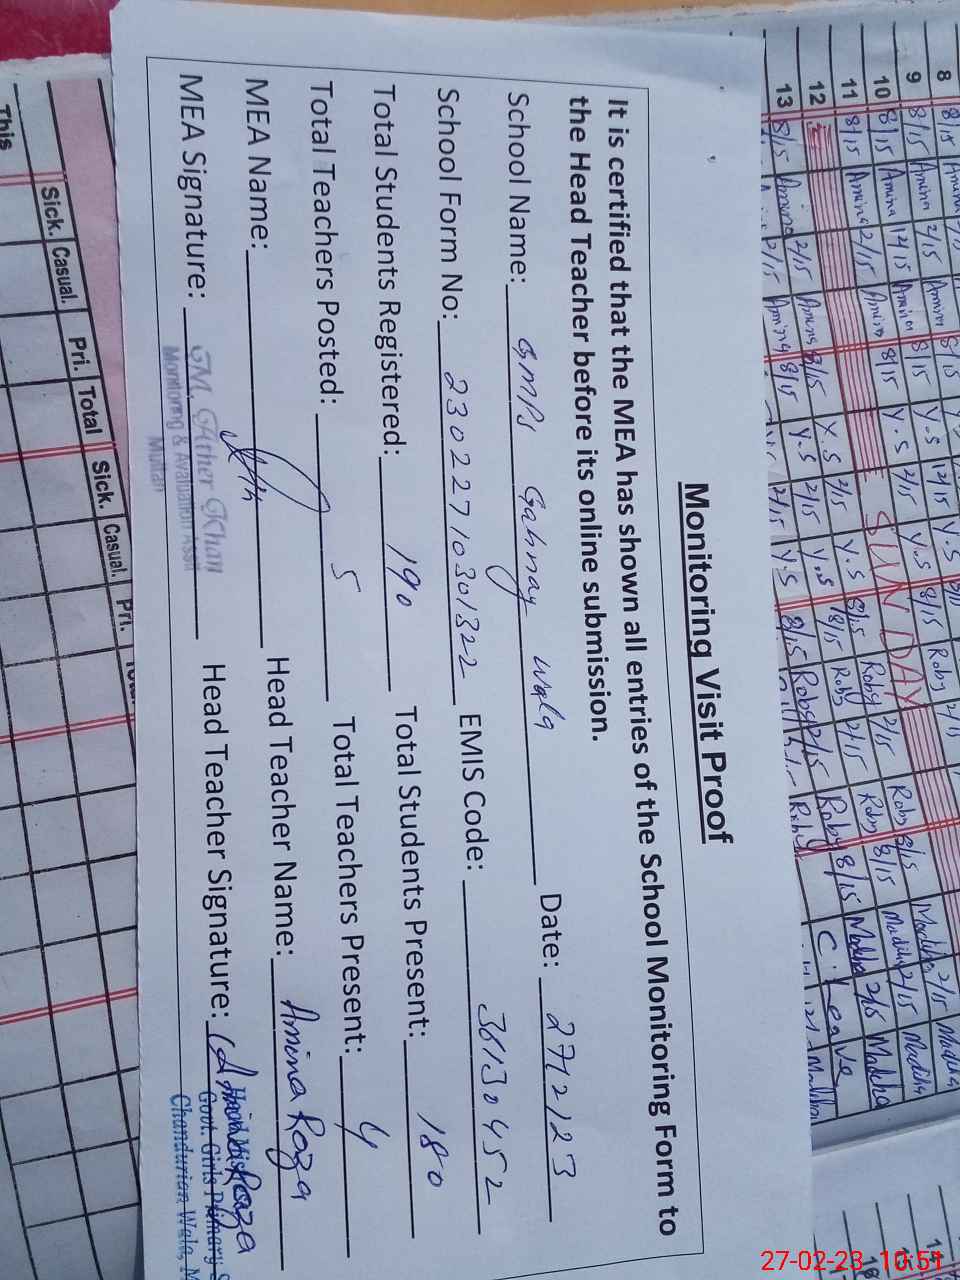 Monitoring Visit Proof
It is certified that the MEA has shown all entries of the School Monitoring Form to
the Head Teacher before its online submission.
School Name: GMPS Gahnay wala Date: 27/2/23
School Form No: 23022710301322 EMIS Code: 36130452
Total Students Registered: 190 Total Students Present: 180
Total Teachers Posted: 5 Total Teachers Present: 4
MEA Name: Head Teacher Name: Amina Raza
MEA Signature: Head Teacher Signature: Amina Raza
GM. Ather Khan
Monitoring & Avaluation Assit
Multan
Govt. Girls Primary S
Chandurian Wala, M
8 8/15 Amina
9 8/15 Amina 2/15 Amina 8/15 Y.S 12/15 Y.S Roby 2/15 Madiha
10 8/15 Amina 12/15 Amina 8/15 Y.S 2/15 Y.S 8/15 Roby 8/15 Madiha 2/15 Madiha
11 8/15 Amina 2/15 Amina 8/15 Y.S 8/15 Roby 2/15 Roby 8/15 Madiha 2/15 Madiha
12 SUNDAY
13 8/15 Amina 2/15 Amina 8/15 Y.S 2/15 Y.S 8/15 Roby 2/15 Roby 8/15 C. Leave
14
16
This
Sick. Casual. Pri. Total Sick. Casual. Pri. Total
27-02-23 10:51